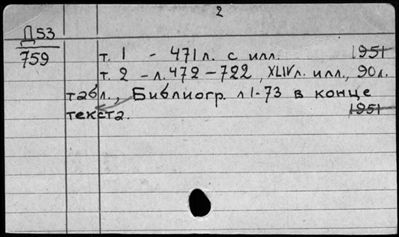 2
Д53
759
т. 1 - 471 л. с илл. 1951
т. 2 - л. 472 - 722, XLIV л. илл., 90 л.
табл., Библиогр. л 1-73 в конце
текста. 1951